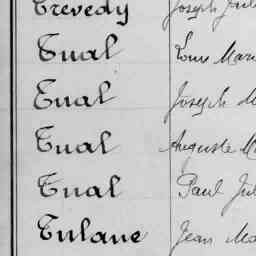 Trevedy Joseph Jul
Tual Louis Mari
Tual Joseph M
Tual Auguste Ma
Tual Paul Jul
Tulane Jean Ma